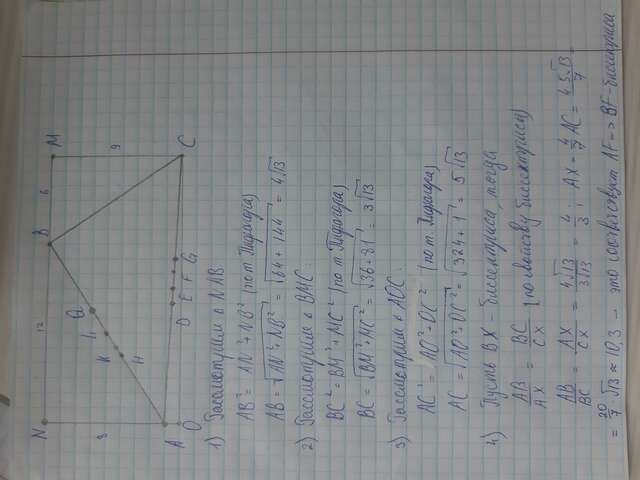 N 12 B 6 M
8
9
Q
L
K
H
A
O
D E F G
C
1) Рассмотрим △ NAB
AB² = AN² + NB² (по т. Пифагора)
AB = √AN² + NB² = √64 + 144 = 4√13
2) Рассмотрим △ BMC.
BC² = BM² + MC² (по т. Пифагора)
BC = √BM² + MC² = √36 + 81 = 3√13
3) Рассмотрим △ AOC.
AC² = AO² + OC² (по т. Пифагора)
AC = √AO² + OC² = √324 + 1 = 5√13
4) Пусть BX - биссектриса, тогда
AB/AX = BC/CX (по свойству биссектрисы)
AB/BC = AX/CX = 4√13/3√13 = 4/3; AX = 4/7 AC = 4·5√13/7 =
= 20/7 √13 ≈ 10,3 - это соответствует AF => BF - биссектриса